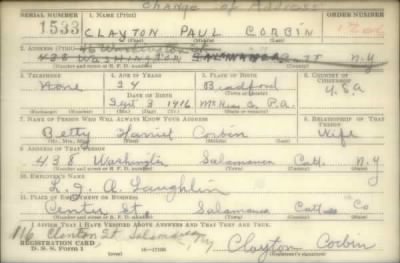 Change of Address
SERIAL NUMBER 1. NAME (Print) ORDER NUMBER
1533 CLAYTON PAUL CORBIN
(First) (Middle) (Last)
2. ADDRESS (Print)
438 WASHINGTON SALAMANCA CATT N.Y
3. TELEPHONE 4. AGE IN YEARS 5. PLACE OF BIRTH 6. COUNTRY OF CITIZENSHIP
None 24 Bradford U.S.A
DATE OF BIRTH
Sept 3 1916 McKean Co. P.A.
7. NAME OF PERSON WHO WILL ALWAYS KNOW YOUR ADDRESS 8. RELATIONSHIP OF THAT PERSON
Betty Harriet Corbin Wife
(Mr., Mrs., Miss) (First) (Middle) (Last)
9. ADDRESS OF THAT PERSON
438 Washington Salamanca Catt. N.Y
10. EMPLOYER'S NAME
A. Laughlin
11. PLACE OF EMPLOYMENT OR BUSINESS
Center St Salamanca Catt Co
I AFFIRM THAT I HAVE VERIFIED ABOVE ANSWERS AND THAT THEY ARE TRUE.
116 Clinton St. Salamanca, NY
REGISTRATION CARD
D. S. S. Form 1
Clayton Corbin